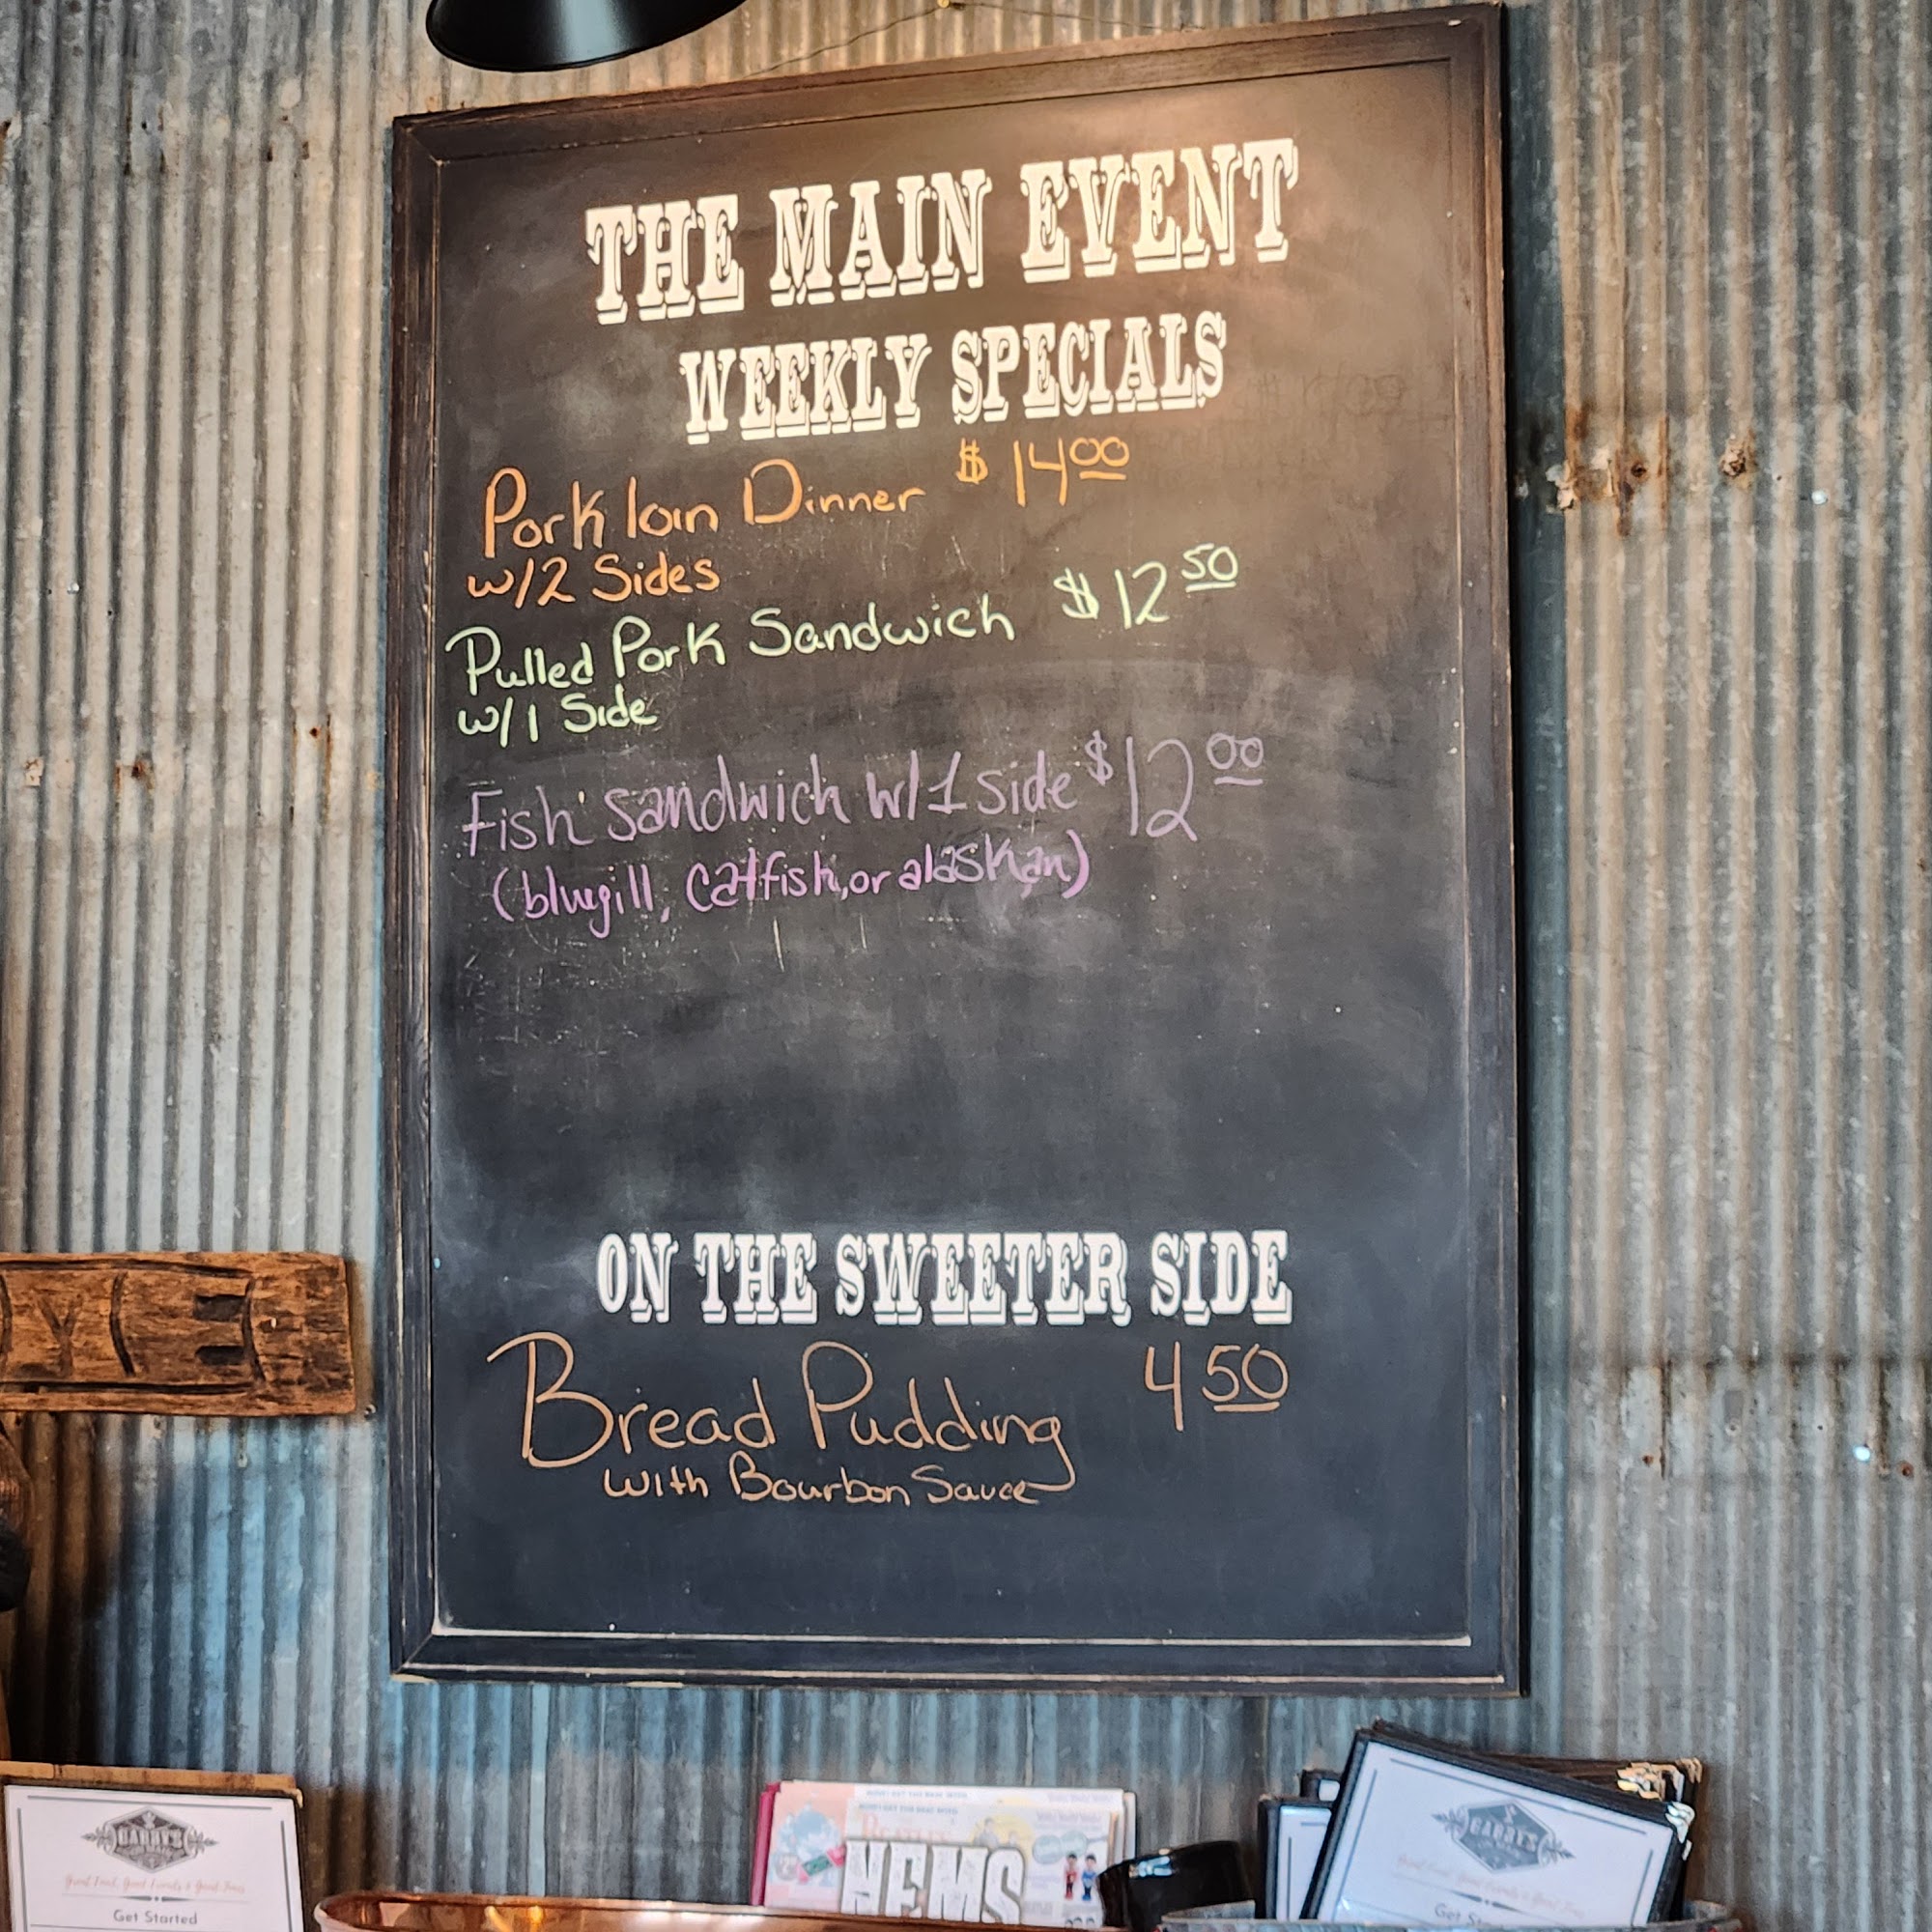 THE MAIN EVENT
WEEKLY SPECIALS
Pork loin Dinner $14.00
w/2 Sides
Pulled Pork Sandwich $12.50
w/1 Side
Fish sandwich w/1 side $12.00
(bluegill, catfish, or alaskan)
ON THE SWEETER SIDE
Bread Pudding 4 50
with Bourbon Sauce
BARRY'S
Good Food, Good Friends & Good Times
Get Started
NEWS
BARRY'S
Get